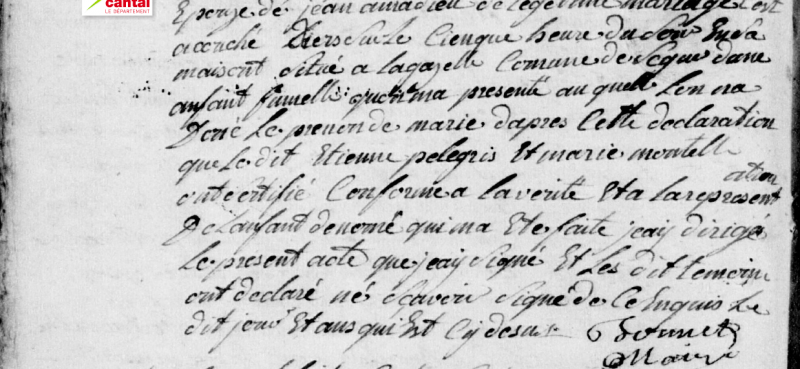 cantal
LE DÉPARTEMENT
Epouze de jean amadieu de legetime mariage Est
acorché Diers sur le Cienque heure du Soir En sa
maisont Situé a lagazelle Comune de Segur dune
anfant fumelle quon ma presenté au quell Lon na
Doné Le prenon de marie dapres Cette declaration
que Le dit Etienne pelegris Et marie montell
ont Certifié Conforme a la verité Et a la represent
ation
De Lanfant denomé qui ma Ete faite jeaij dirigé
Le present acte que jeaij Signé Et Les dit temoin
ont declaré né Scavoir Signé de Ce Enquis Le
dit jour Et ans qui Est Cij desus
Bonnet
Maire